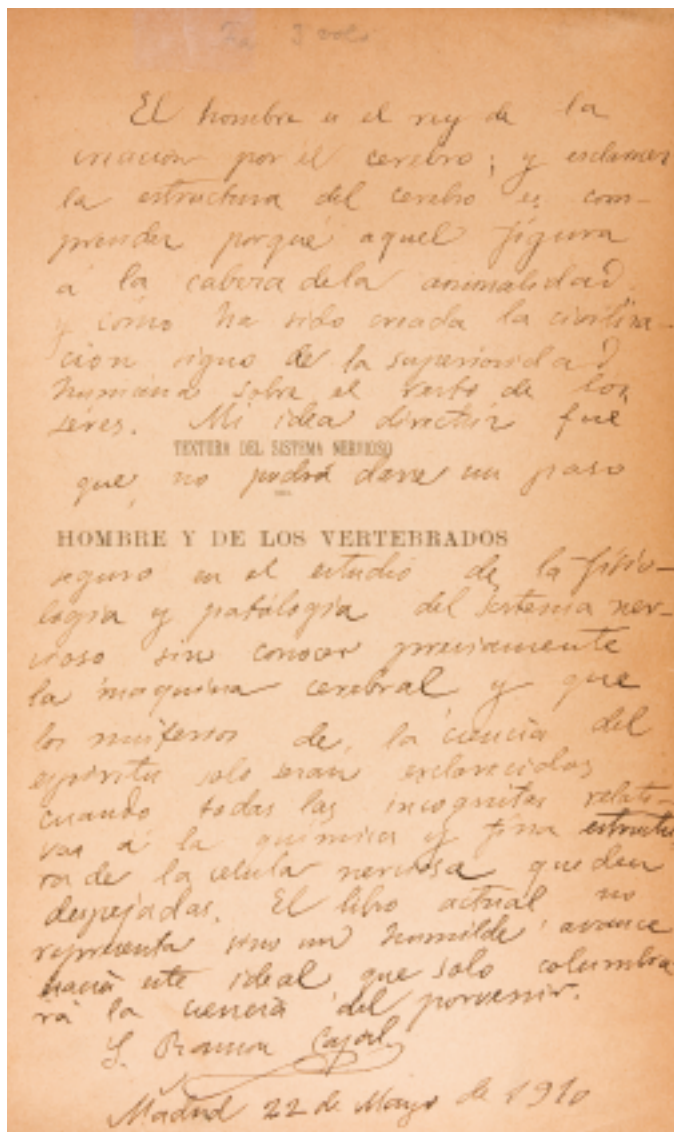 3 vol.
El hombre es el rey de la
creación por el cerebro; y esclarecer
la estructura del cerebro es com-
prender porqué aquel figura
á la cabeza de la animalidad
y cómo ha sido creada la civiliza-
ción signo de la superioridad
humana sobre el resto de los
seres. Mi idea directriz fué
TEXTURA DEL SISTEMA NERVIOSO
que no podrá darse un paso
HOMBRE Y DE LOS VERTEBRADOS
seguro en el estudio de la fisio-
logia y patologia del sistema ner-
vioso sin conocer previamente
la maquina cerebral y que
los de la ciencia del
espiritu solo seran esclarecidos
cuando todas las incognitas relati-
vas á la quimica y fina estructu
ra de la celula nerviosa queden
despejadas. El libro actual no
representa sino un humilde avance
hacia este ideal que solo columbra
rá la ciencia del porvenir.
S. Ramon Cajal
Madrid 22 de Mayo de 1910